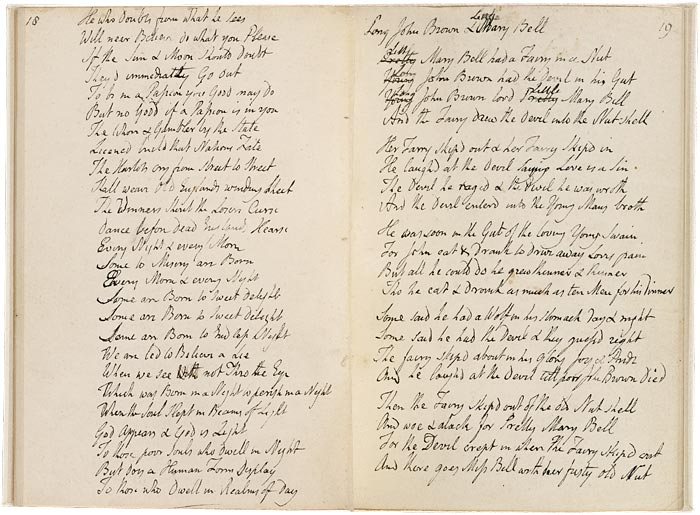 18
He who doubts from what he sees
Will neer Believe do what you Please
If the Sun & Moon should doubt
Theyd immediately Go out
To be in a Passion you Good may do
But no Good if a Passion is in you
The Whore & Gambler by the State
Licencd build that Nations Fate
The Harlots cry from Street to Street
Shall weave Old Englands winding Sheet
The Winners Shout the Losers Curse
Dance before dead Englands Hearse
Every Night & every Morn
Some to Misery are Born
Every Morn & every Night
Some are Born to sweet delight
Some are Born to sweet delight
Some are Born to Endless Night
We are led to Believe a Lie
When we see not Thro the Eye
Which was Born in a Night to perish in a Night
When the Soul Slept in Beams of Light
God Appears & God is Light
To those poor Souls who dwell in Night
But does a Human Form Display
To those who Dwell in Realms of day
19
Long John Brown & Little Mary Bell
Little
Pretty Mary Bell had a Fairy in a Nut
Long
Young John Brown had the Devil in his Gut
Long Little
Young John Brown lovd Pretty Mary Bell
And the Fairy drew the Devil into the Nut-shell
Her Fairy Skipd out & her Fairy Skipd in
He laughd at the Devil saying Love is a Sin
The Devil he raged & the Devil he was wroth
And the Devil enterd into the Young Mans broth
He was soon in the Gut of the loving Young Swain
For John eat & drank to drive away Loves pain
But all he could do he grew thinner & thinner
Tho he eat & drank as much as ten Men for his dinner
Some said he had a Wolf in his stomach day & night
Some said he had the Devil & they guessd right
The fairy skipd about in his Glory Joy & Pride
And he laughd at the Devil till poor John Brown Died
Then the Fairy skipd out of the old Nut shell
And woe & alack for Pretty Mary Bell
For the Devil crept in When The Fairy skipd out
And there goes Miss Bell with her fusty old Nut